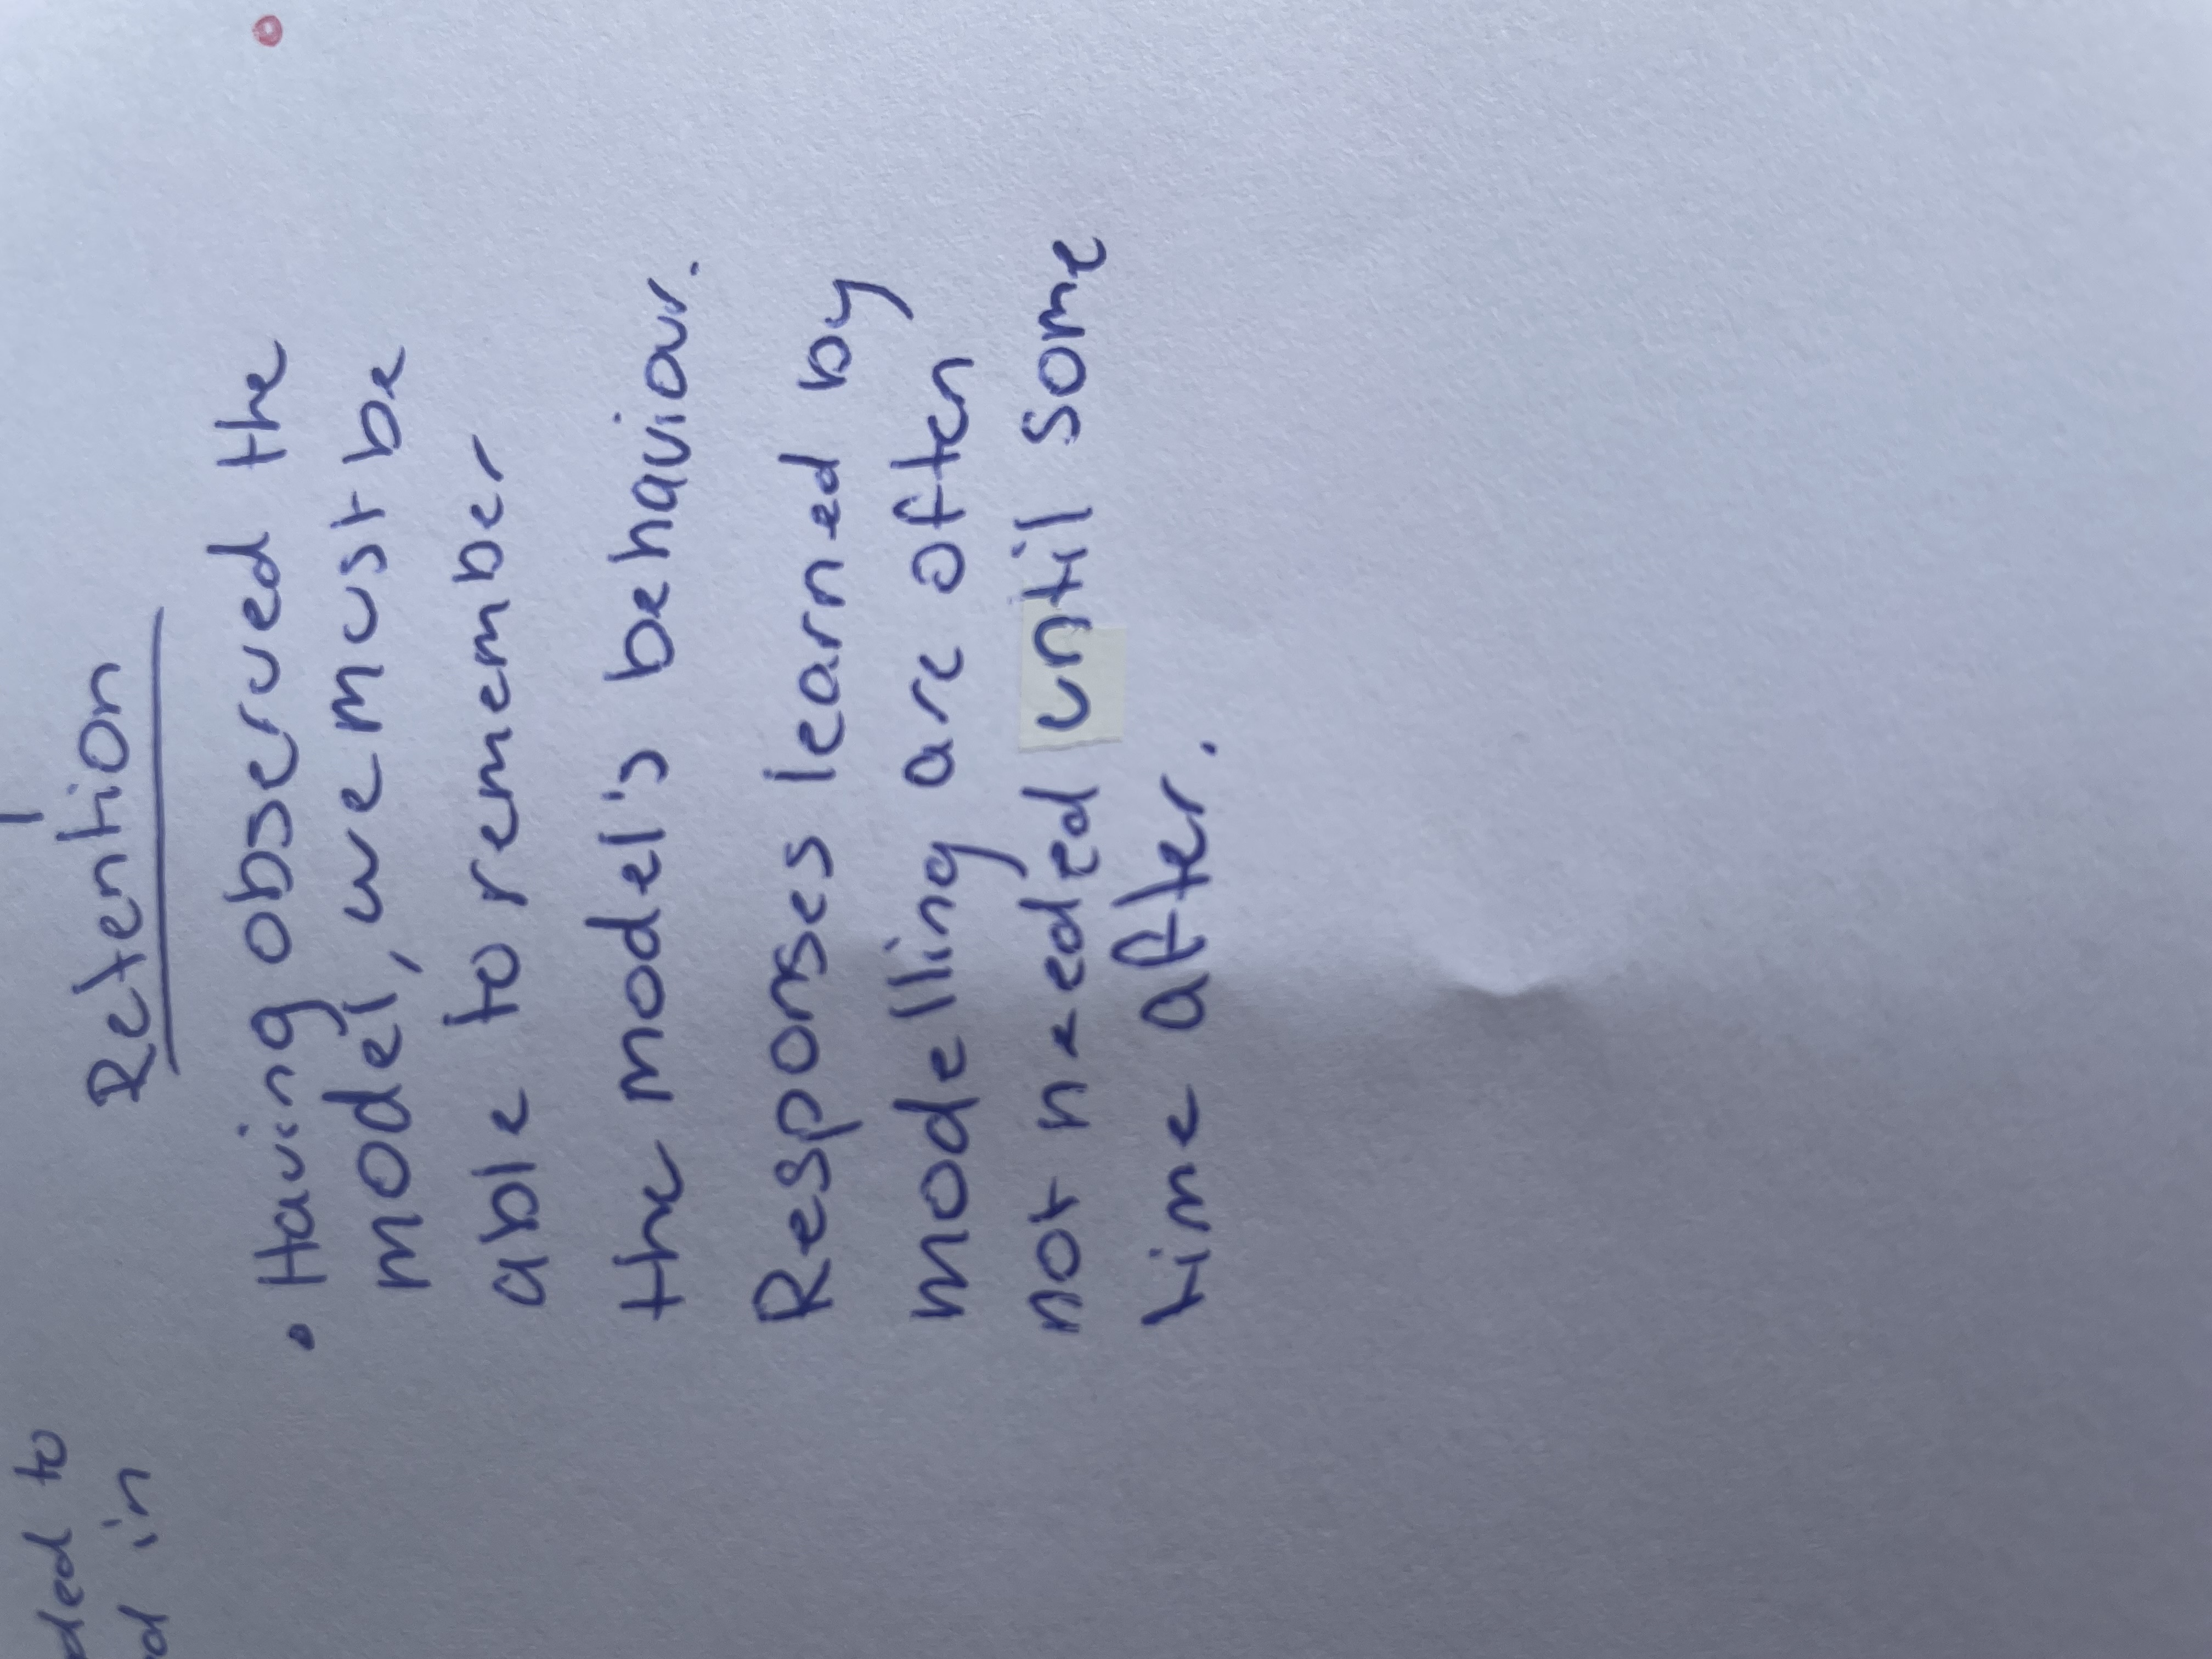 Retention
• Having observed the
model, we must be
able to remember
the model's behaviour.
Responses learned by
modelling are often
not needed until some
time after.
to
in